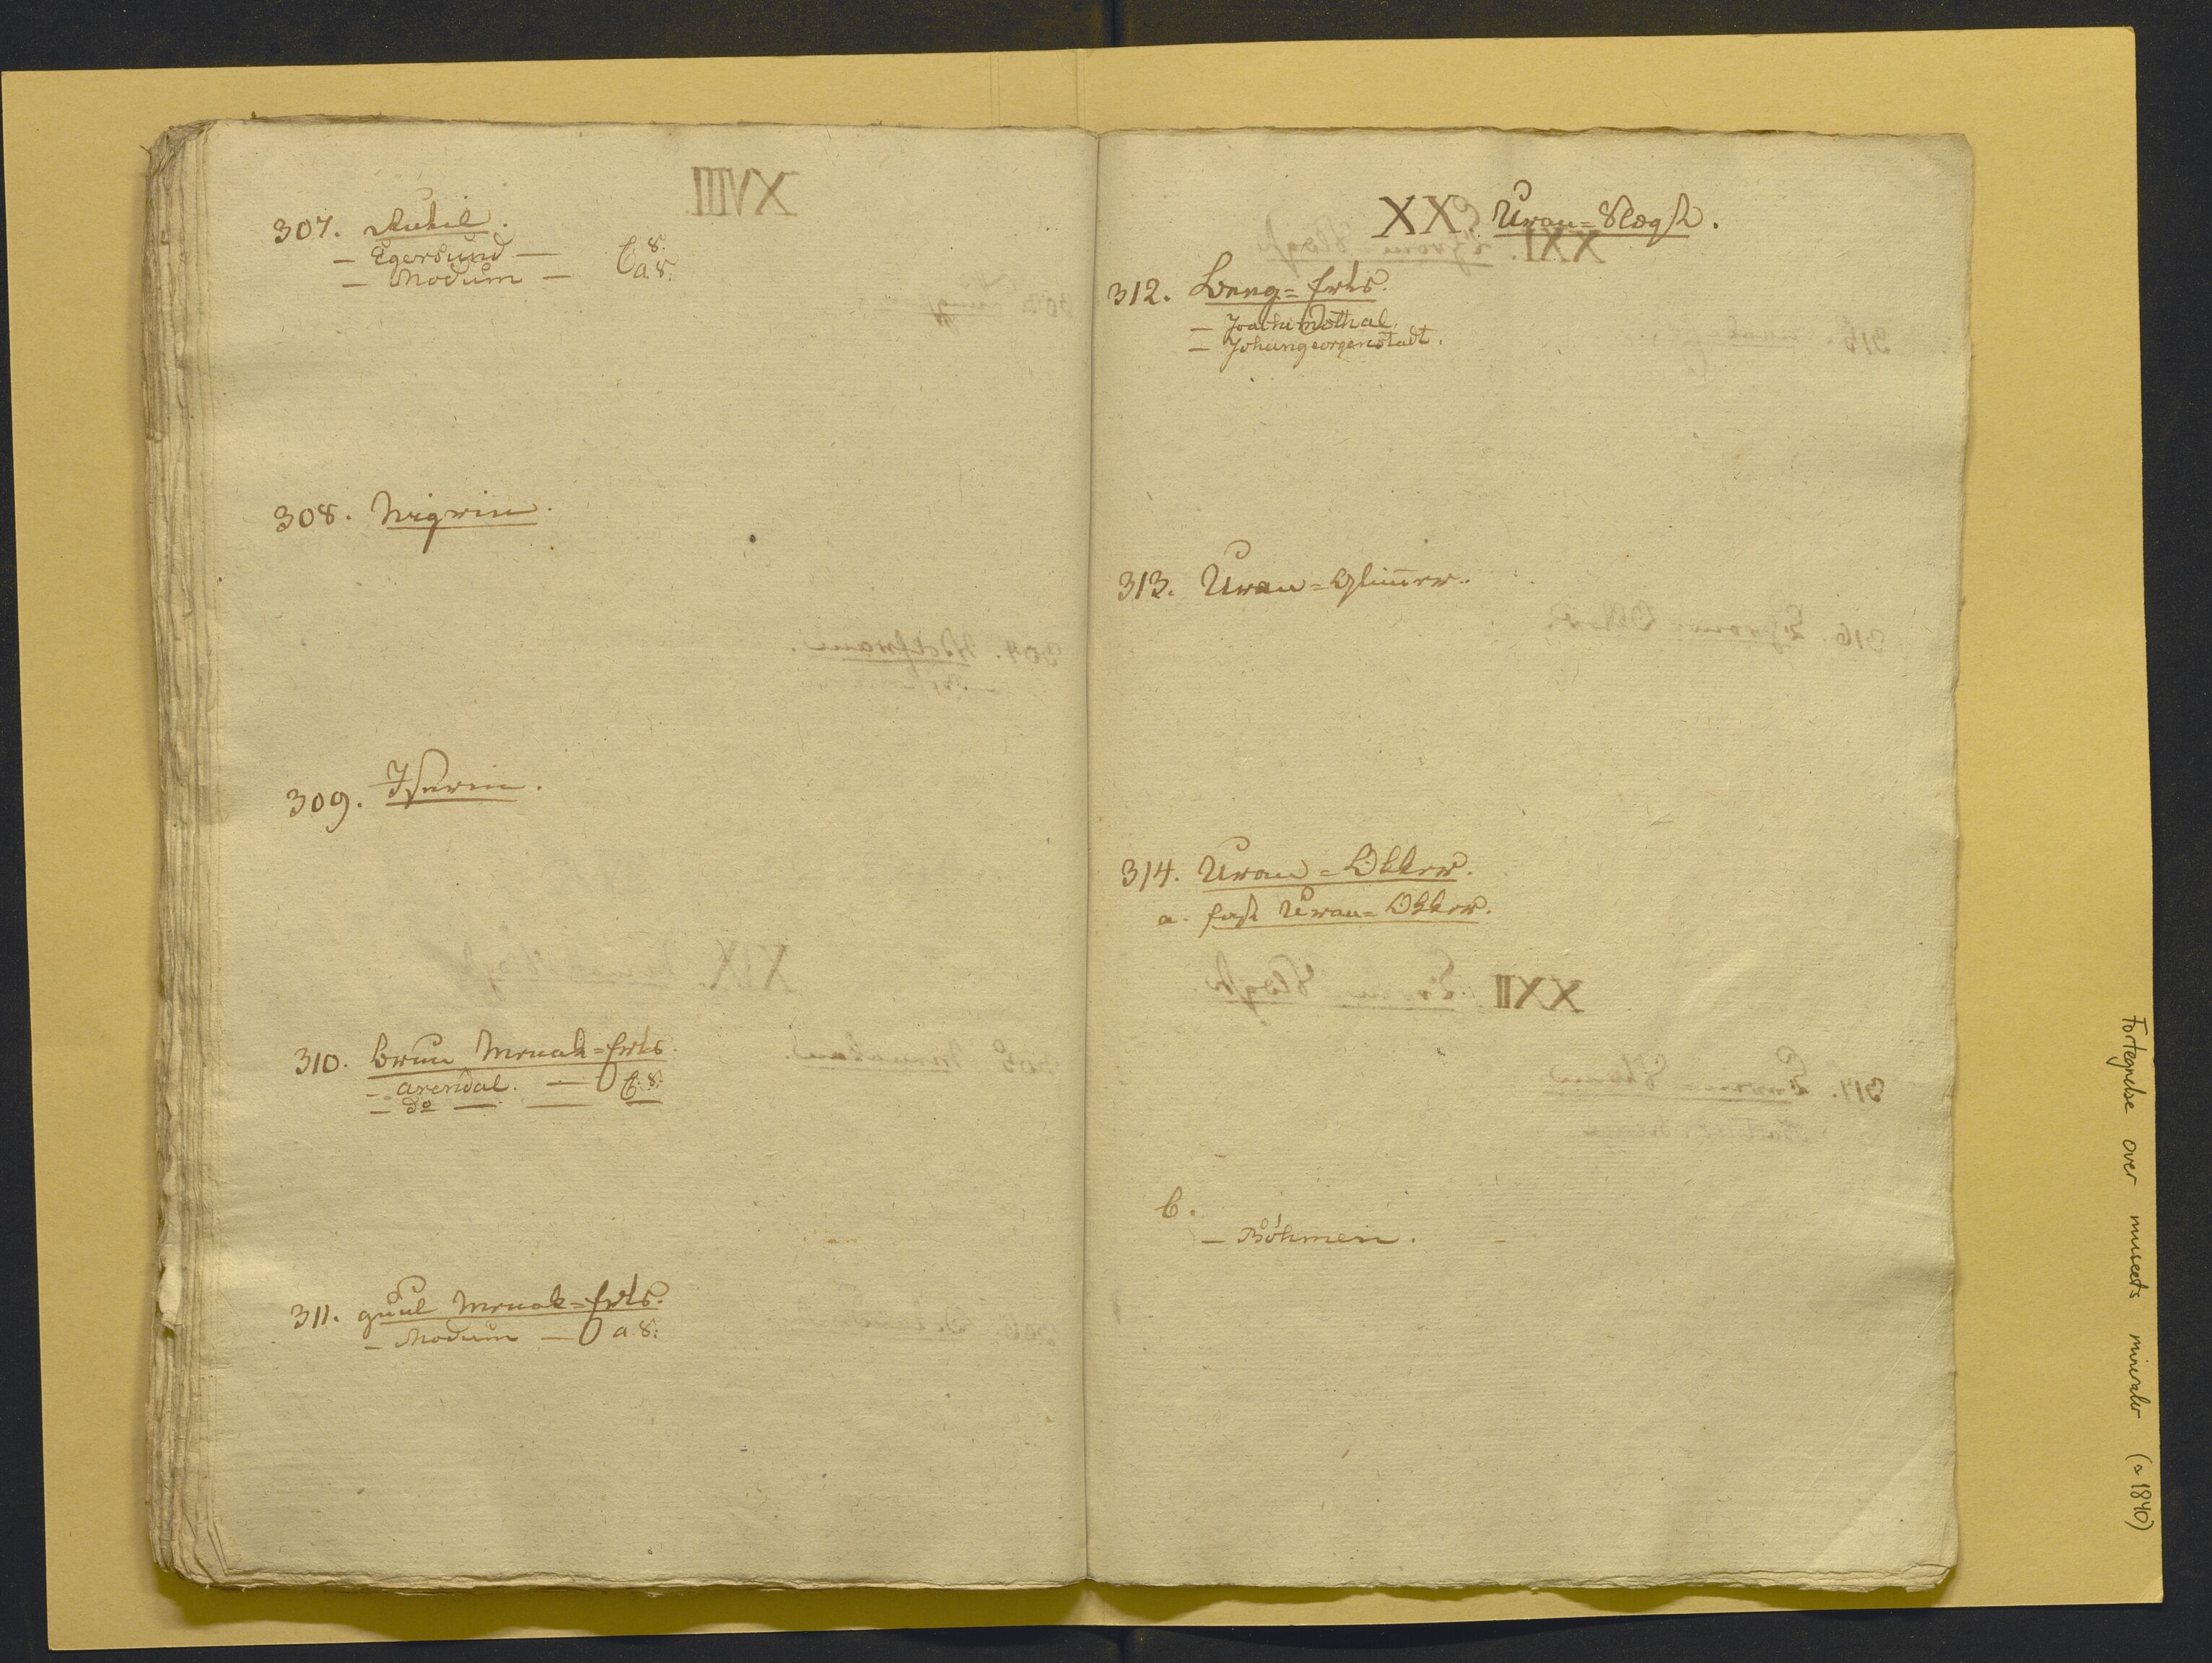 307. Rutil.
— Egersund — C. 8.
— Modum — a. 8.
308. Nigrin.
309. Iserin.
310. brun Menak=Erts.
— Arendal. — C. 8.
— do — —
311. guul Menak=Erts.
— Modum — a. 8.
XX. Uran=Slægt.
312. Beeg=Erts.
— Joachimsthal.
— Johangeorgenstadt.
313. Uran=Glim̄er.
314. Uran=Okker.
a. fast Uran=Okker.
b.
— Böhmen.
Fortegnelse over museets mineraler (ca 1840)